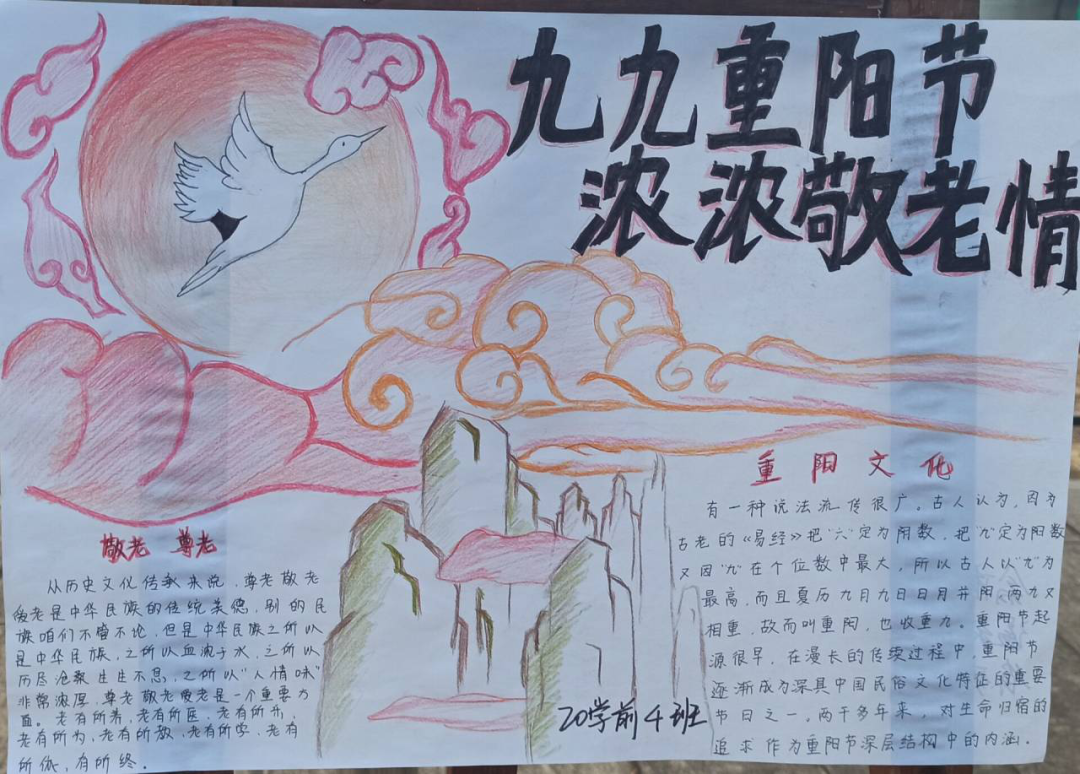 九九重阳节
浓浓敬老情
敬老 尊老
从历史文化传承来说，尊老敬老
爱老是中华民族的传统美德，别的民
族咱们不管不论，但是中华民族之所以
是中华民族，之所以血浓于水，之所以
历尽沧桑生生不息，之所以"人情味"
非常浓厚，尊老敬老爱老是一个重要方
面。老有所养，老有所医，老有所为，
老有所为，老有所教，老有所学，老有
所依，有所终。
重阳文化
有一种说法流传很广。古人认为，因为
古老的《易经》把"六"定为阴数，把"九"定为阳数
又因"九"在个位数中最大，所以古人认"九"为
最高，而且夏历九月九日日月并阳，两九又
相重，故而叫重阳，也收重九。重阳节起
源很早，在漫长的传续过程中，重阳节
逐渐成为深具中国民俗文化特征的重要
节日之一。两千多年来，对生命归宿的
追求作为重阳节深层结构中的内涵。
20学前4班